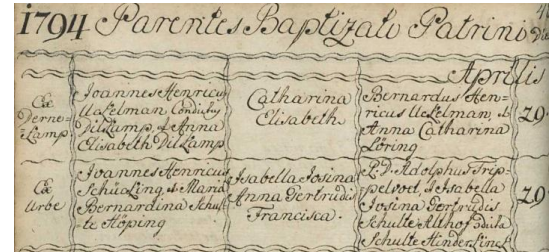 1794 Parentes Baptizati Patrini
Aprilis
Ex
Derne=
Camp
Joannes Henricus
Uekelman Condictus
DilCamp & Anna
Elisabeth DilCamp
Catharina
Elisabeth
Bernardus Hen=
ricus Uekelman &
Anna Catharina
Löring
29
Ex
Urbe
Joannes Henricus
Schückling & Maria
Bernardina Schul=
te Höping
Isabella Josina
Anna Gertrudis
Francisca.
Adolphus Trip=
pelvod, & Isabella
Josina Gertrudis
Schulte Allhof
Schulte Hinder
29